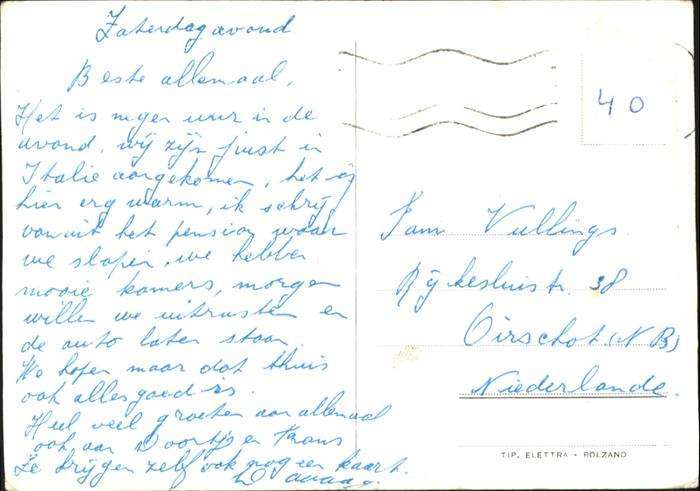 Zaterdagavond
Beste allemaal,
Het is negen uur in de
avond, wij zijn juist in
Italie aangekomen, het is
hier erg warm, ik schrijf
vanuit het pension waar
we slapen, we hebben
mooie kamers, morgen
willen we uitrusten en
de auto laten staan.
We hopen maar dat thuis
ook alles goed is.
Heel veel groeten aan allemaal
ook aan Doortje en Frans
Ze krijgen zelf ook nog een kaart.
40
Fam Vullings
Rijkesluisstr. 38
Oirschot (N B)
Niederlande.
TIP. ELETTRA - BOLZANO